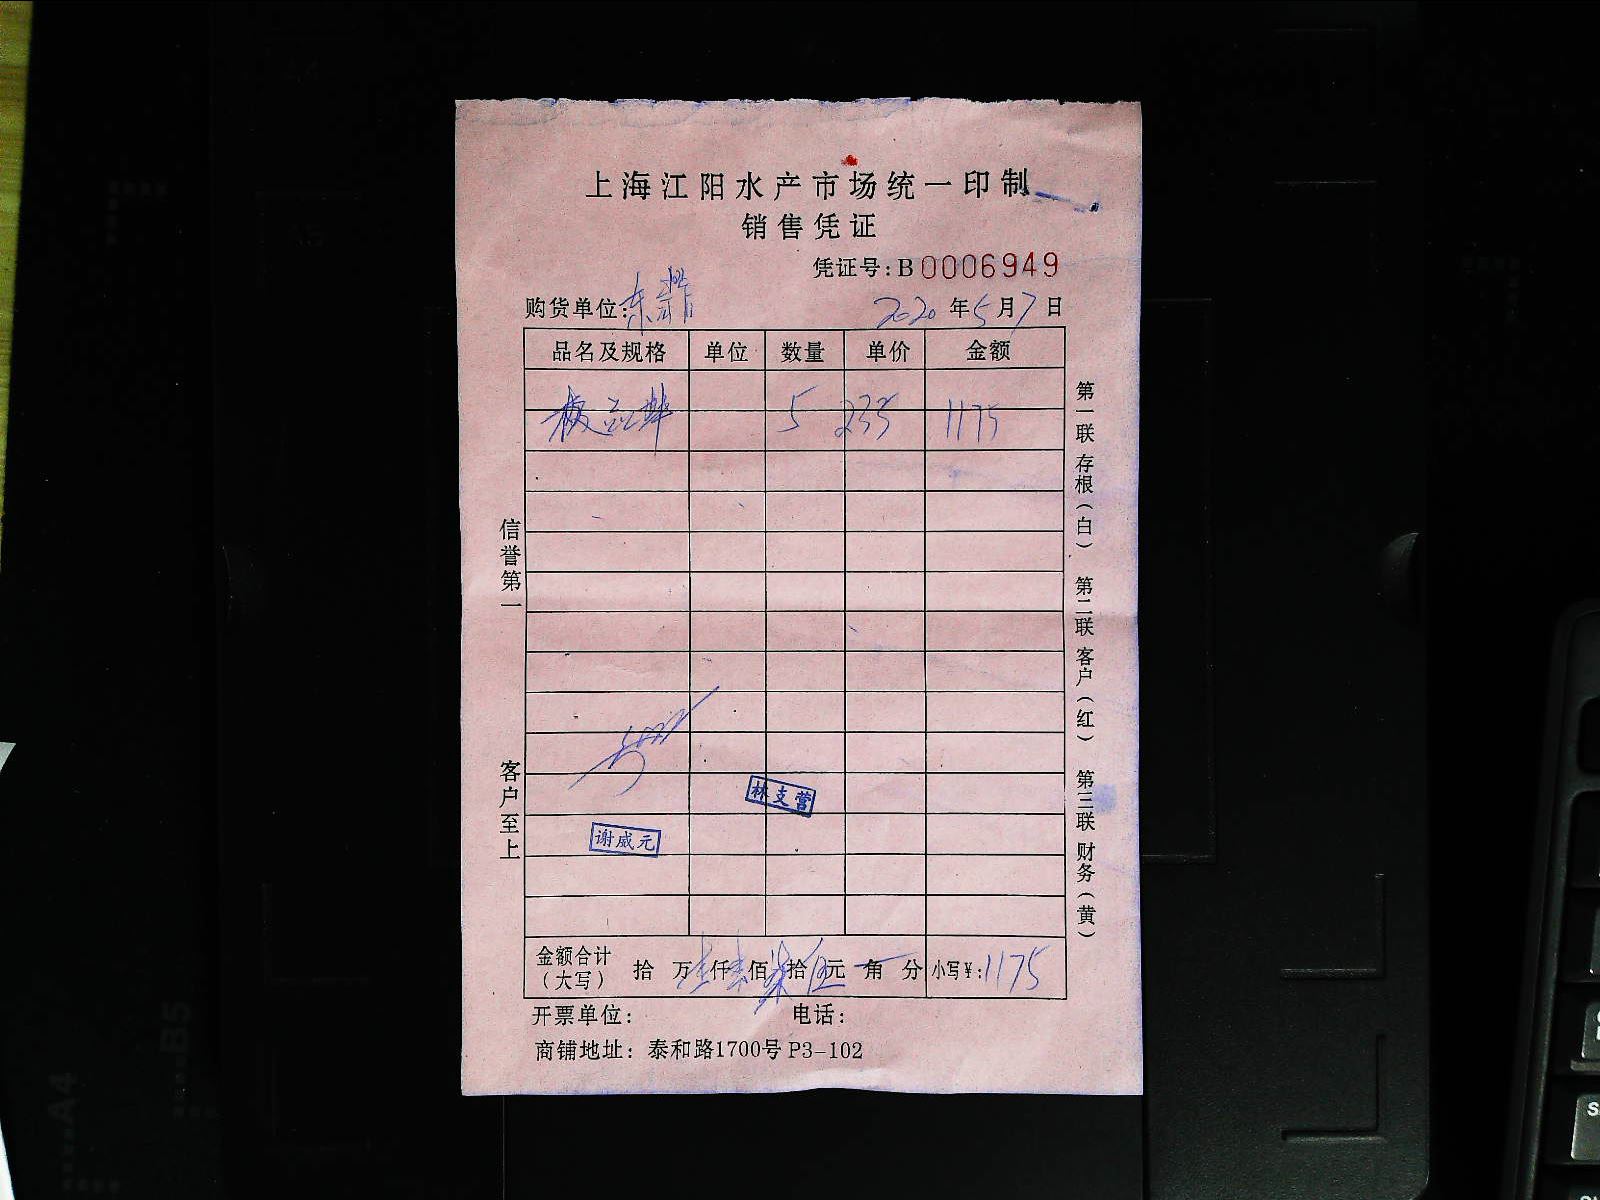 上海江阳水产市场统一印制
销售凭证
凭证号：B0006949
购货单位： 2020年5月7日
品名及规格 单位 数量 单价 金额
5 235 1175
信誉第一
客户至上
第一联 存根（白） 第二联 客户（红） 第三联 财务（黄）
林支营
谢威元
金额合计（大写） 拾 万壹仟壹佰柒拾伍元 角 分 小写¥：1175
开票单位： 电话：
商铺地址：泰和路1700号P3-102
A4
B5